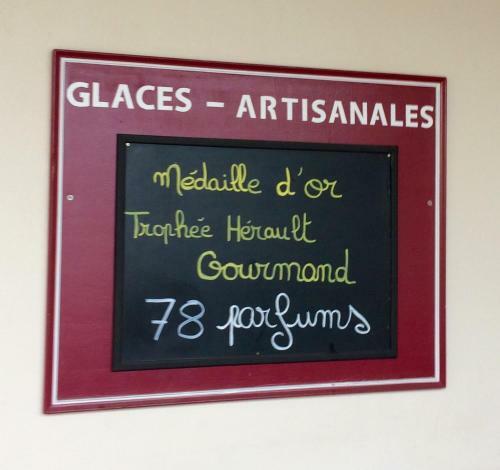 GLACES - ARTISANALES
Médaille d'or
Trophée Hérault
Gourmand
78 parfums